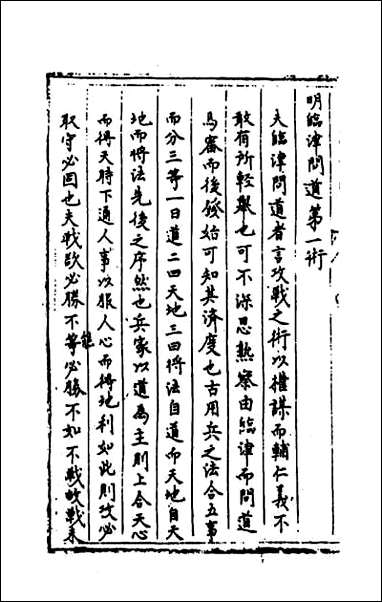 明臨津問道第一術
夫臨津問道者言攻戰之術以權謀而輔仁義不
敢有所輕舉也可不深思熟察由臨津而問道
焉審而後發始可知其濟度也古用兵之法合五事
而分三等一曰道二曰天地三曰將法自道而天地自天
地而將法先後之序然也兵家以道為主則上合天心
而得天時下通人事以服人心而得地利如此則攻必
取守必固也夫戰欲必勝不能等必勝不如不戰故戰未